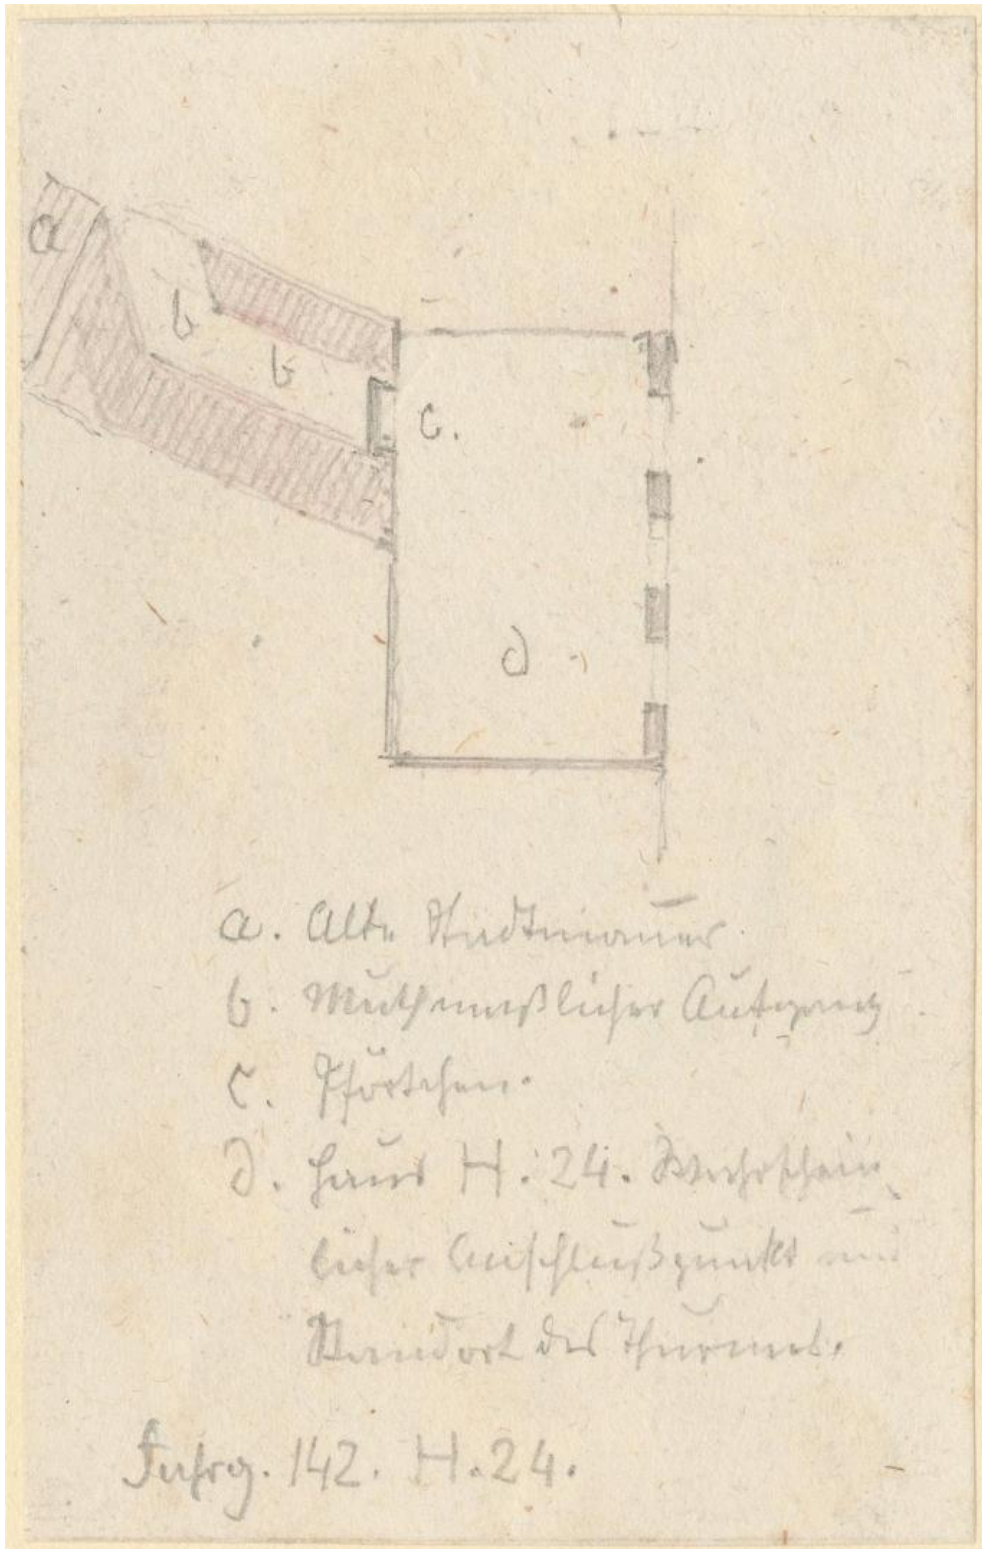 a
b
b
c.
d
a. Alte Stadtmauer.
b. Muthmaßlicher Aufgang.
c. Pförtchen.
d. Haus H. 24. Wahrschein
licher Anschlußpunkt und
Standort des Thurmes.
Fahrg. 142. H. 24.